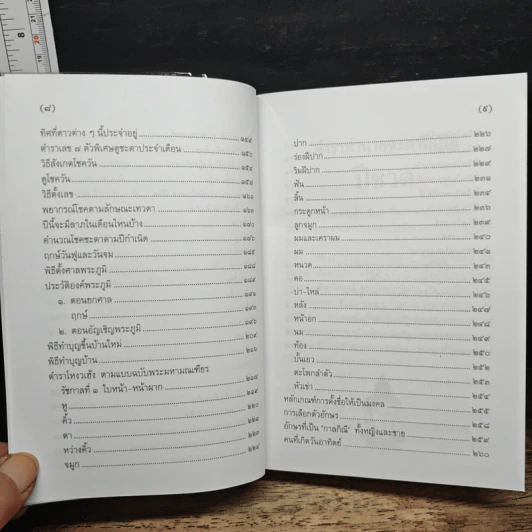 (๘)
ทิศที่ดาวต่าง ๆ นี้ประจำอยู่
ตำราเลข ๗ ตัวพิเศษดูชะตาประจำเดือน
วิธีสังเกตโชควัน
ดูโชควัน
วิธีตั้งเลข ๑๖๑
พยากรณ์โชคตามลักษณะเทวดา
ปีนี้จะมีลาภในเดือนไหนบ้าง
คำนวณโชคชะตาตามปีกำเนิด
ฤกษ์วันฟูและวันจม ๑๘๕
พิธีตั้งศาลพระภูมิ ๑๘๘
ประวัติองค์พระภูมิ
๑. ตอนยกศาล ๑๙๑
ฤกษ์
๒. ตอนอัญเชิญพระภูมิ ๑๙๖
พิธีทำบุญขึ้นบ้านใหม่ ๒๐๙
พิธีทำบุญบ้าน ๒๑๖
ตำราโหงวเฮ้ง ตามแบบฉบับพระมหามณเฑียร
รัชกาลที่ ๑ ใบหน้า-หน้าผาก ๒๑๘
หู ๒๑๙
คิ้ว ๒๒๐
ตา ๒๒๑
หว่างคิ้ว ๒๒๔
จมูก ๒๒๔
(๙)
ปาก ๒๒๖
ร่องฝีปาก ๒๒๗
ริมฝีปาก ๒๒๙
ฟัน ๒๓๑
ลิ้น ๒๓๔
กระดูกหน้า
ลูกจมูก ๒๓๙
ผมและเคราผม ๒๔๐
ผม
หนวด ๒๔๓
คอ ๒๔๕
บ่า-ไหล่ ๒๔๖
หลัง ๒๔๗
หน้าอก ๒๔๘
นม ๒๔๙
ท้อง ๒๕๐
บั้นเอว ๒๕๒
ตะโพกลำตัว ๒๕๓
หัวเข่า ๒๕๔
หลักเกณฑ์การตั้งชื่อให้เป็นมงคล ๒๕๕
การเลือกตัวอักษร ๒๕๘
อักษรที่เป็น "กาลกิณี" ทั้งหญิงและชาย ๒๕๙
คนที่เกิดวันอาทิตย์ ๒๖๐